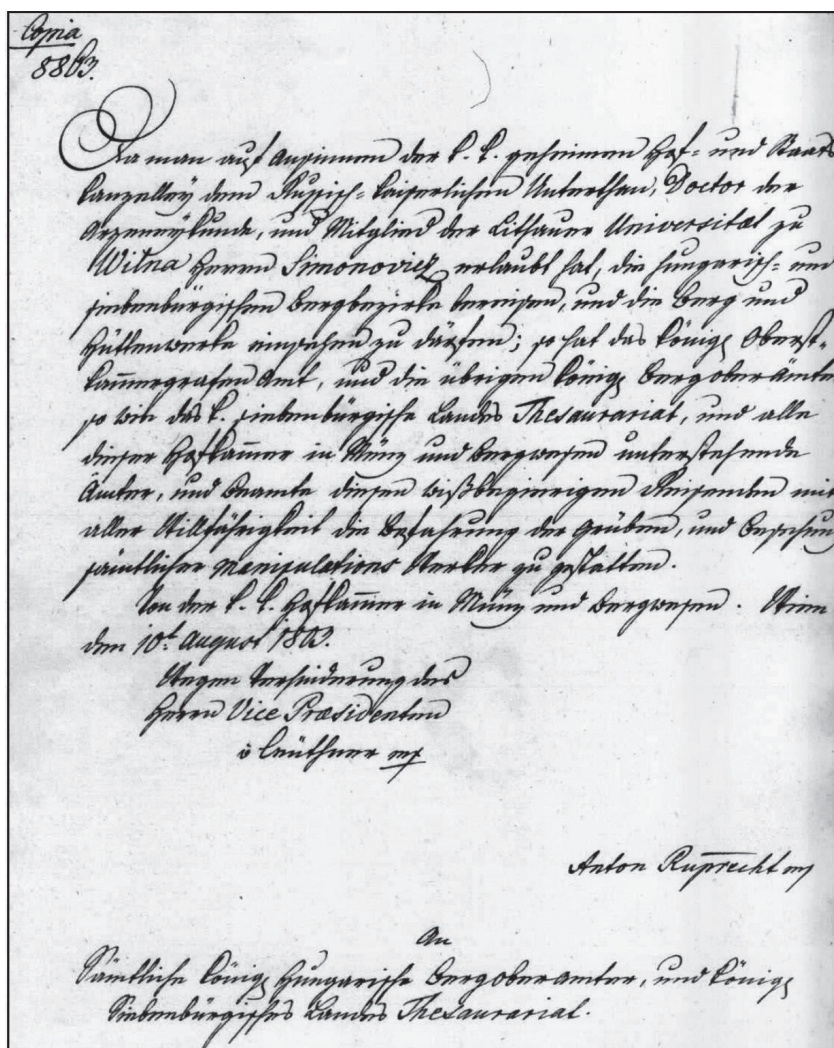 Copia
8863.
Da man auf Ansinnen der k. k. geheimen Hof- und Staats
kanzelley dem Russisch-kaiserlichen Unterthan, Doctor der
Arzeneykunde, und Mitglied der Lithauer Universitæt zu
Wilna Herrn Simonovicz erlaubt hat, die hungarisch- und
siebenbürgischen Bergbezirke bereisen, und die Berg und
Hüttenwerke einsehen zu därfen; so hat das königl Oberst-
kammergrafen Amt, und die übrigen königl Bergoberämter
so wie das k. siebenbürgische Landes Thesaurariat, und alle
dieser Hofkammer in Münz und Bergwesen unterstehende
Ämter, und Beamte diesen wißbegierigen Reisenden mit
aller Willfährigkeit die Befahrung der Grüben, und Besehung
sämtlicher Manipulations Werker zu gestatten.
Von der k. k. Hofkammer in Münz und Bergwesen. Wien
den 10t August 1803.
Wegen Verhinderung des
Herrn Vice Præsidenten
v Leüthner mp
Anton Ruprecht mp
An
Sämtliche königl Hungarische Bergoberamter, und königl
Siebenbürgisches Landes Thesaurariat.